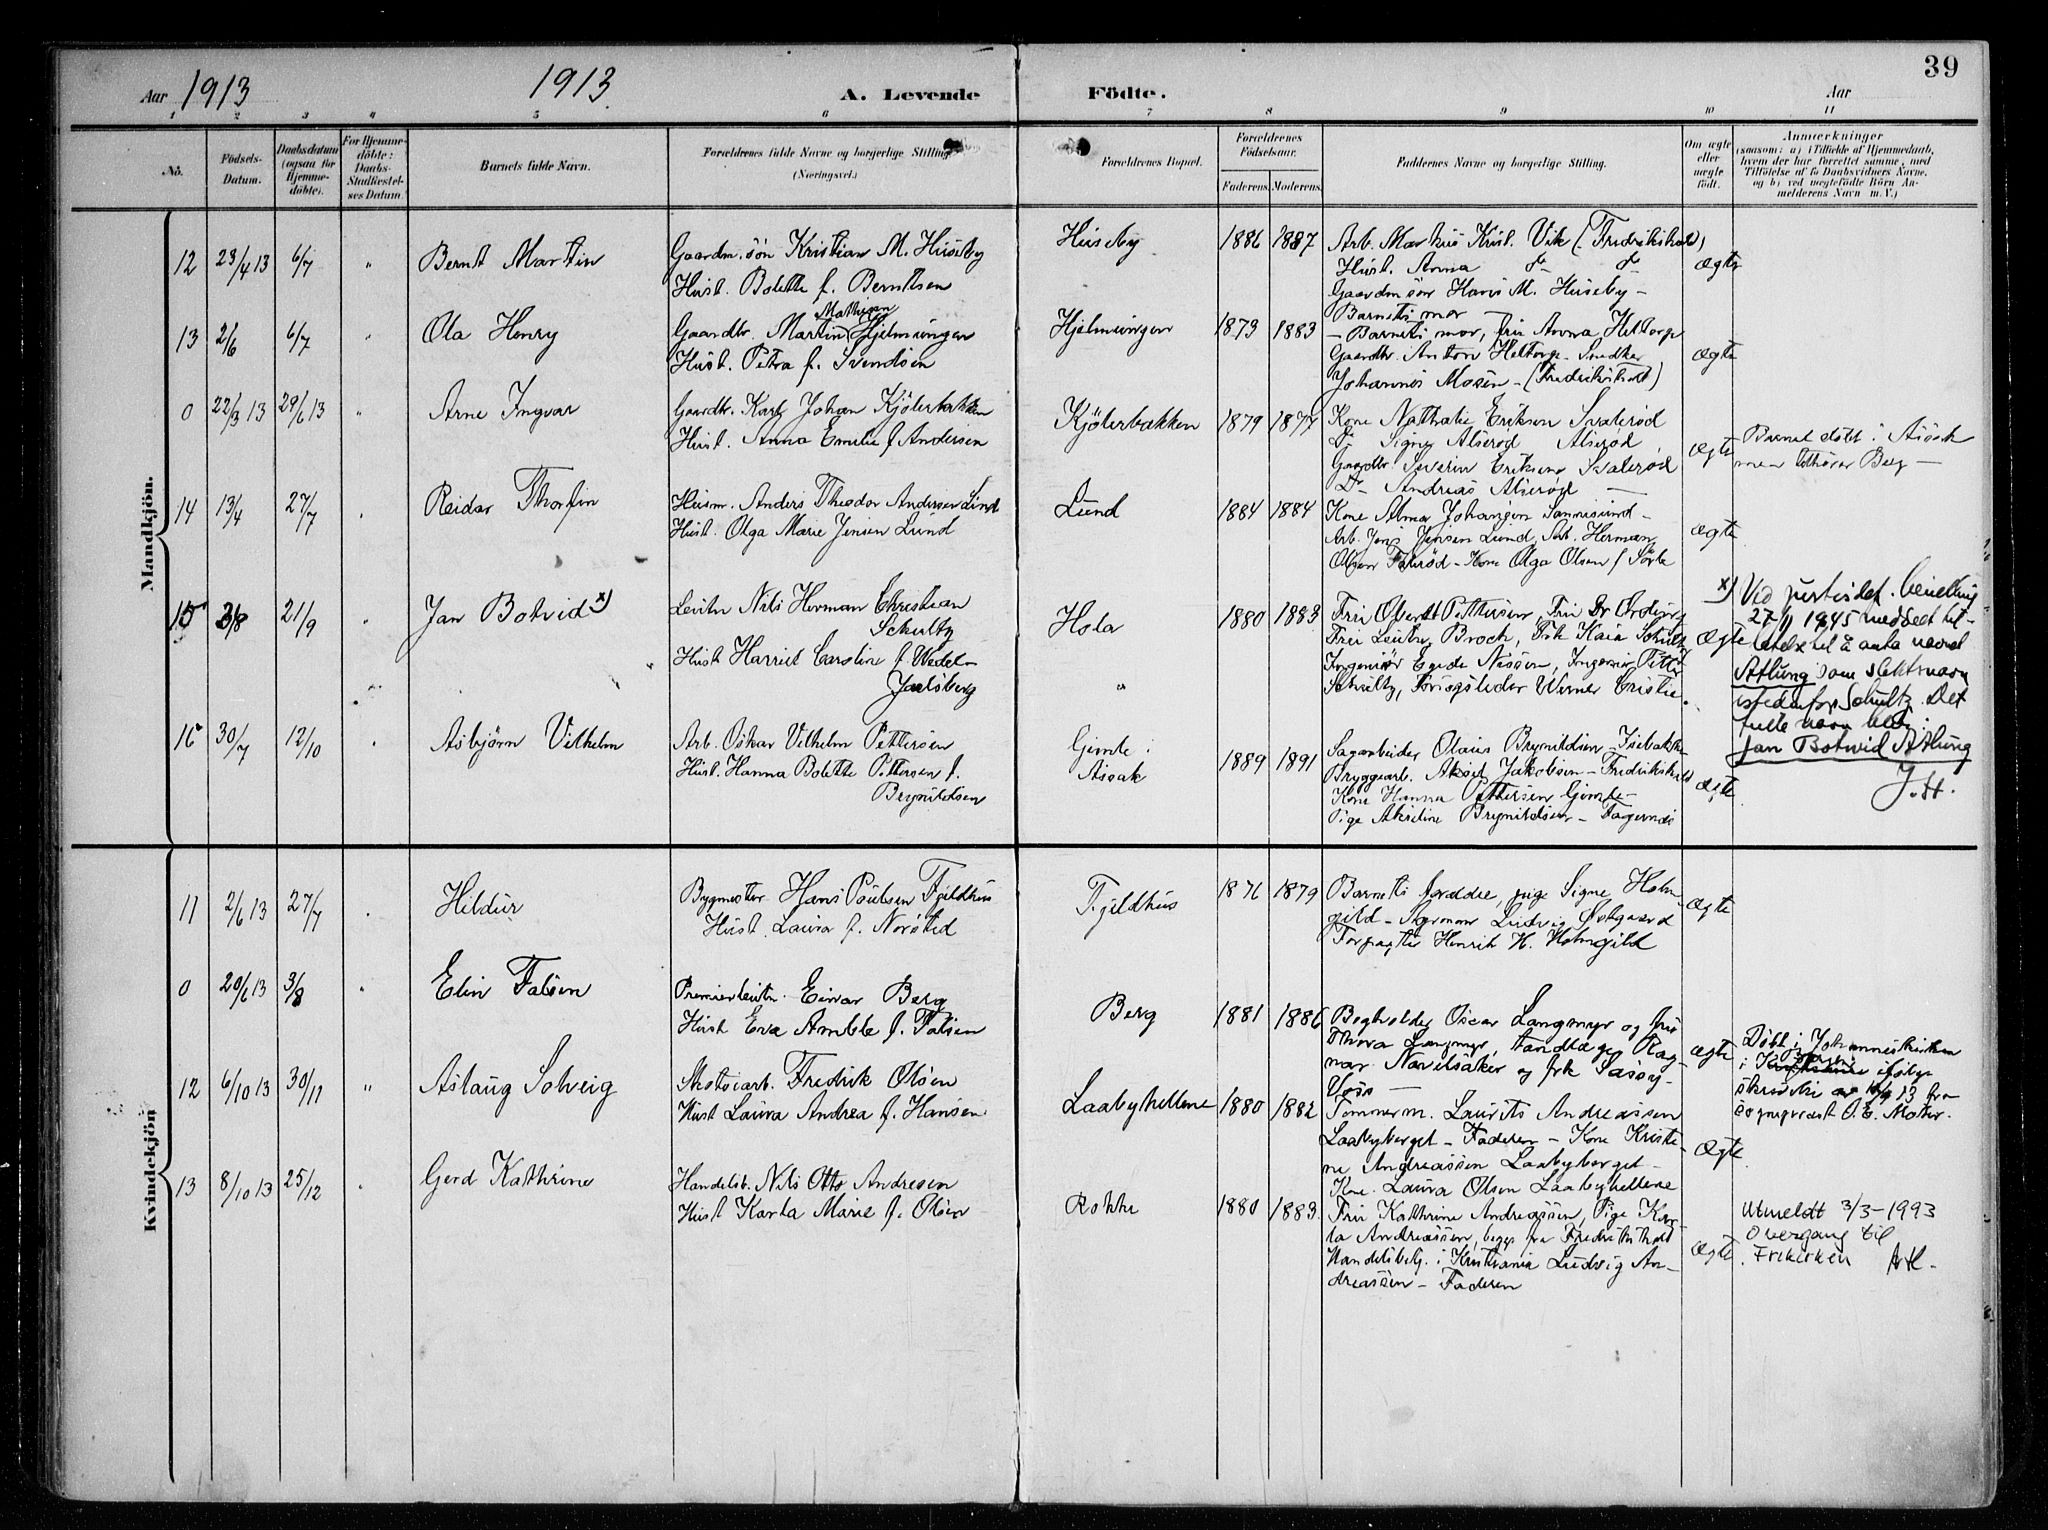 39
Aar 1913
1913
A. Levende Födte.
Aar
1 2 3 4 5 6 7 8 9 10 11
No.
Födsels-Datum.
Daabsdatum (ogsaa for Hjemme-döbte).
For Hjemme-döbte: Daabs-Stadfæstel-ses Datum.
Barnets fulde Navn.
Forældrenes fulde Navne og borgerlige Stilling
(Næringsvei.)
Forældrenes Bopæl.
Forældrenes Födselsaar.
Faderens. Moderens.
Faddernes Navne og borgerlige Stilling.
Om ægte eller uægte födt.
Anmærkninger
(saasom: a) i Tilfælde af Hjemmedaab,
hvem der har forrettet samme, med
Tilföielse af to Daabsvidners Navne,
og b) ved uægtefödte Börn An-
melderens Navn m. V.)
Mandkjön.
12 23/4 13 6/7 " Bernt Martin
Gaardm. sön Kristian M. Huseby
Hust. Bolette f. Berntsen
Huseby 1886 1887
Arb. Markus Krist. Vik (Fredrikshald)
Hust. Anna
Gaardm sön Hans M. Huseby -
Barnets mor -
Ægte
13 2/6 6/7 " Ola Henry
Mathisen
Gaardbr. Martin Hjelmungen
Hust. Petra f. Svendsen
Hjelmungen 1873 1883
- Barnets mor, fru Anna Heltorp
Gaardbr. Anton Heltorp - Snedker
Johannes Mosen - (Fredrikshald)
Ægte
0 22/3 13 29/6 13 " Arne Ingvar
Gaardbr. Karl Johan Kjölerbakken
Hust. Anna Emilie f. Andersen
Kjölerbakken 1879 1877
Kone Nathalie Eriksen Svalerød
Signe Alserød Alserød
Gaardbr. Severin Eriksen Svalerød
Do Andreas Alserød
Ægte
Barnet döbt i Asak
men tilhører Berg -
14 13/4 27/7 " Reidar Thorfin
Husm. Anders Theodor Andersen Lund
Hust. Olga Marie Jensen Lund
Lund 1884 1884
Kone Alma Johansen Sannesund -
Arb. Jens Jensen Lund, Arb. Herman
Olsen - Kone Olga Olsen
Ægte
15 3/8 21/9 Jan Botvid x)
Leitn Nils Herman Christian
Schultz
Hust Harriet Caroline f. Wedel-
Jarlsberg
Hola 1880 1883
Frøk Kaia Schultz
Ingeniör Egede Nissen, Ingeniør
Schultz, Werner Cristie.
Ægte
x) Vid justisdep. bevilling
27/11 1945 meddelt til-
latelse til å anta navnet
Atlung som slektsnavn
istedenfor Schultz. Det
fulle navn blir:
Jan Botwid Atlung
J. H.
16 30/7 12/10 " Asbjörn Vilhelm
Arb. Oskar Vilhelm Pettersen
Hust. Hanna Bolette Pettersen f.
Brynildsen
Gimle i
Asak 1889 1891
Sagarbeider Olaus Brynildsen -
Bryggearb. Aksel Jakobsen - Fredrikshald
Kone Hanna Pettersen Gimle -
Pige Akseline Brynildsen - Fagernæs
Ægte
Kvindekjön
11 2/6 13 27/7 " Hildur
Bygmester Hans Poulsen Fjeldhus
Hust. Laura f. Norsted
Fjeldhus 1876 1879
Barnets forældre, pige Signe Holm-
gild - Styrmann Ludvig Østgaard
Forpagter Henrik H. Holmgild
Ægte
0 20/6 13 3/8 " Elin Falsen
Premierleitn. Einar Berg
Hust Eva Amble f. Falsen
Berg 1881 1886
Bogholder Oscar Langmyr og fru
Thora Langmyr, tandlæge Rag-
nar Navelsaker og frk
Voss -
Ægte
Döbt i Johanneskirken
i Bergen ifölge
skrivelse av 13 fra
sogneprest O. E. Moher.
12 6/10 13 30/11 " Aslaug Solveig
Skotöiarb. Fredrik Olsen
Hust Laura Andrea f. Hansen
Laabyhellene 1880 1882
Tömmerm. Laurits Andreassen
Laabyberget - Faderen - Kone Kristi-
ne Andreassen Laabyberget -
Kone Laura Olsen Laabyhellene
Ægte
13 8/10 13 25/12 " Gerd Kathrine
Handelsb. Nils Otto Andresen
Hust Karla Marie f. Olsen
Rokke 1880 1883.
Fru Kathrine Andreassen, Pige Kar-
la Andreassen, begge fra Fredrikshald
Handelsbetj. i Kristiania Ludvig An-
dreassen - Faderen
Ægte
Utmeldt 3/3-1993
Overgang til
Frikirken AH-